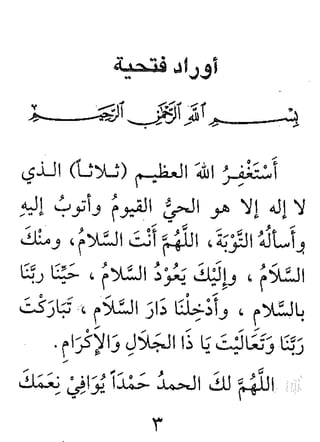 أوراد فتحية
بِسْمِ اللَّهِ الرَّحْمَنِ الرَّحِيمِ
أَسْتَغْفِرُ اللهَ العظيم (ثلاثاً) الذي
لا إله إلا هو الحيُّ القيومُ وأتوبُ إليهِ
وأسألهُ التَّوْبَةَ، اللَّهُمَّ أَنْتَ السَّلامُ، ومنكَ
السَّلامُ، وإليْكَ يَعُوْدُ السَّلامُ، حَيِّنَا ربَّنَا
بالسَّلامِ، وأَدْخِلْنَا دَارَ السَّلَامِ، تَبَارَكْتَ
رَبَّنَا وَتَعَالَيْتَ يَا ذَا الجَلالِ وَالإِكْرَامِ.
اللَّهُمَّ لكَ الحمدُ حَمْدَاً يُوَافِيْ نِعَمَكَ
٣